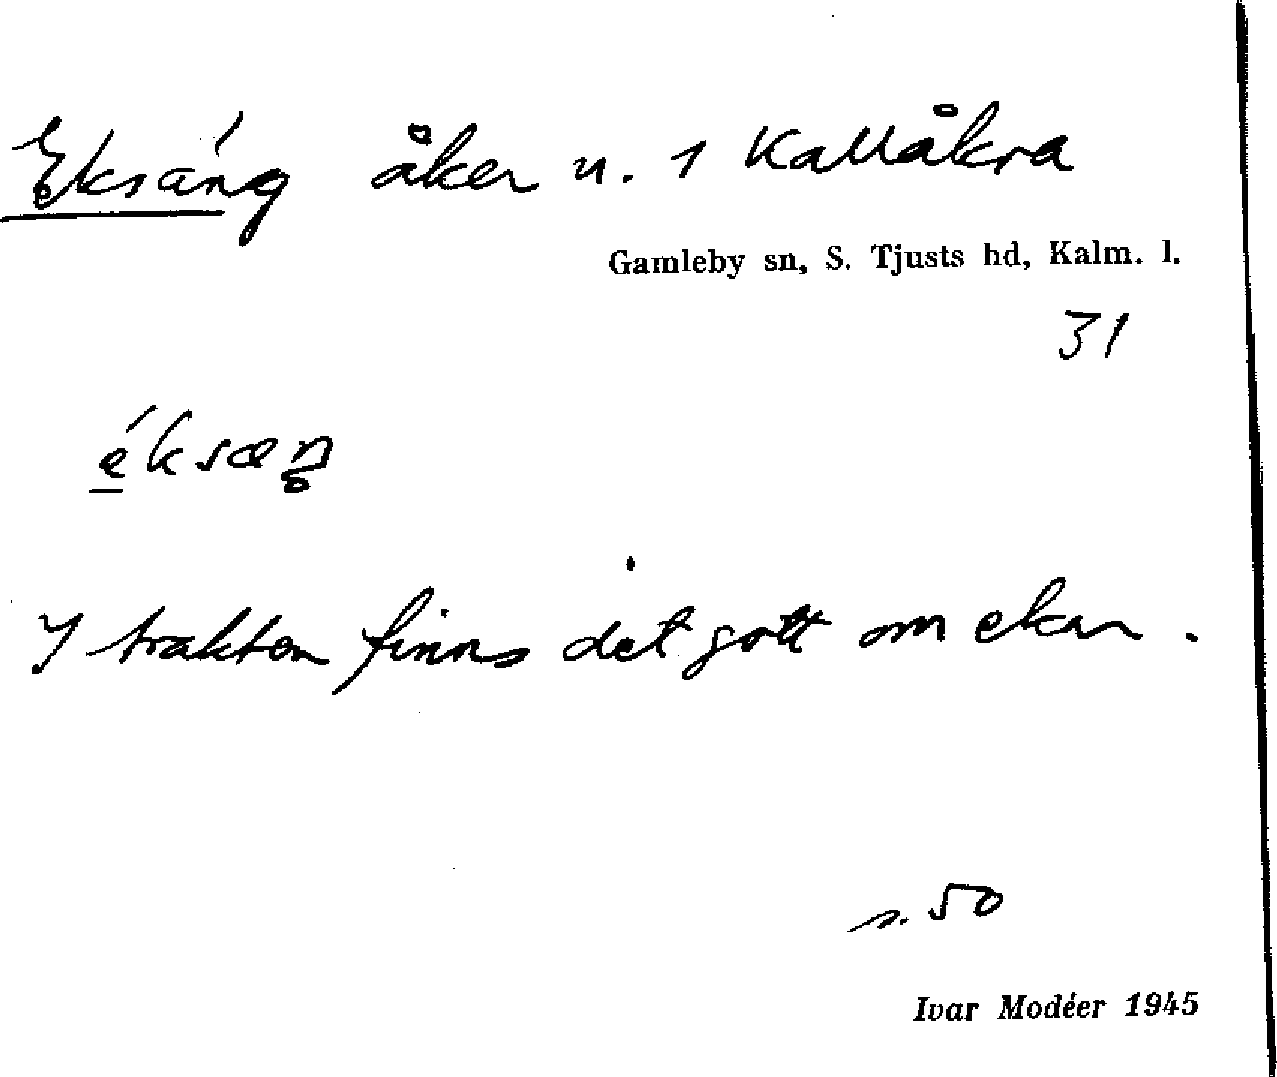 Eksäng åker n. 1 Kallåkra
Gamleby sn, S. Tjusts hd, Kalm. l.
31
éksæŋ
I trakten finns det gott om ekar.
s. 50
Ivar Modéer 1945